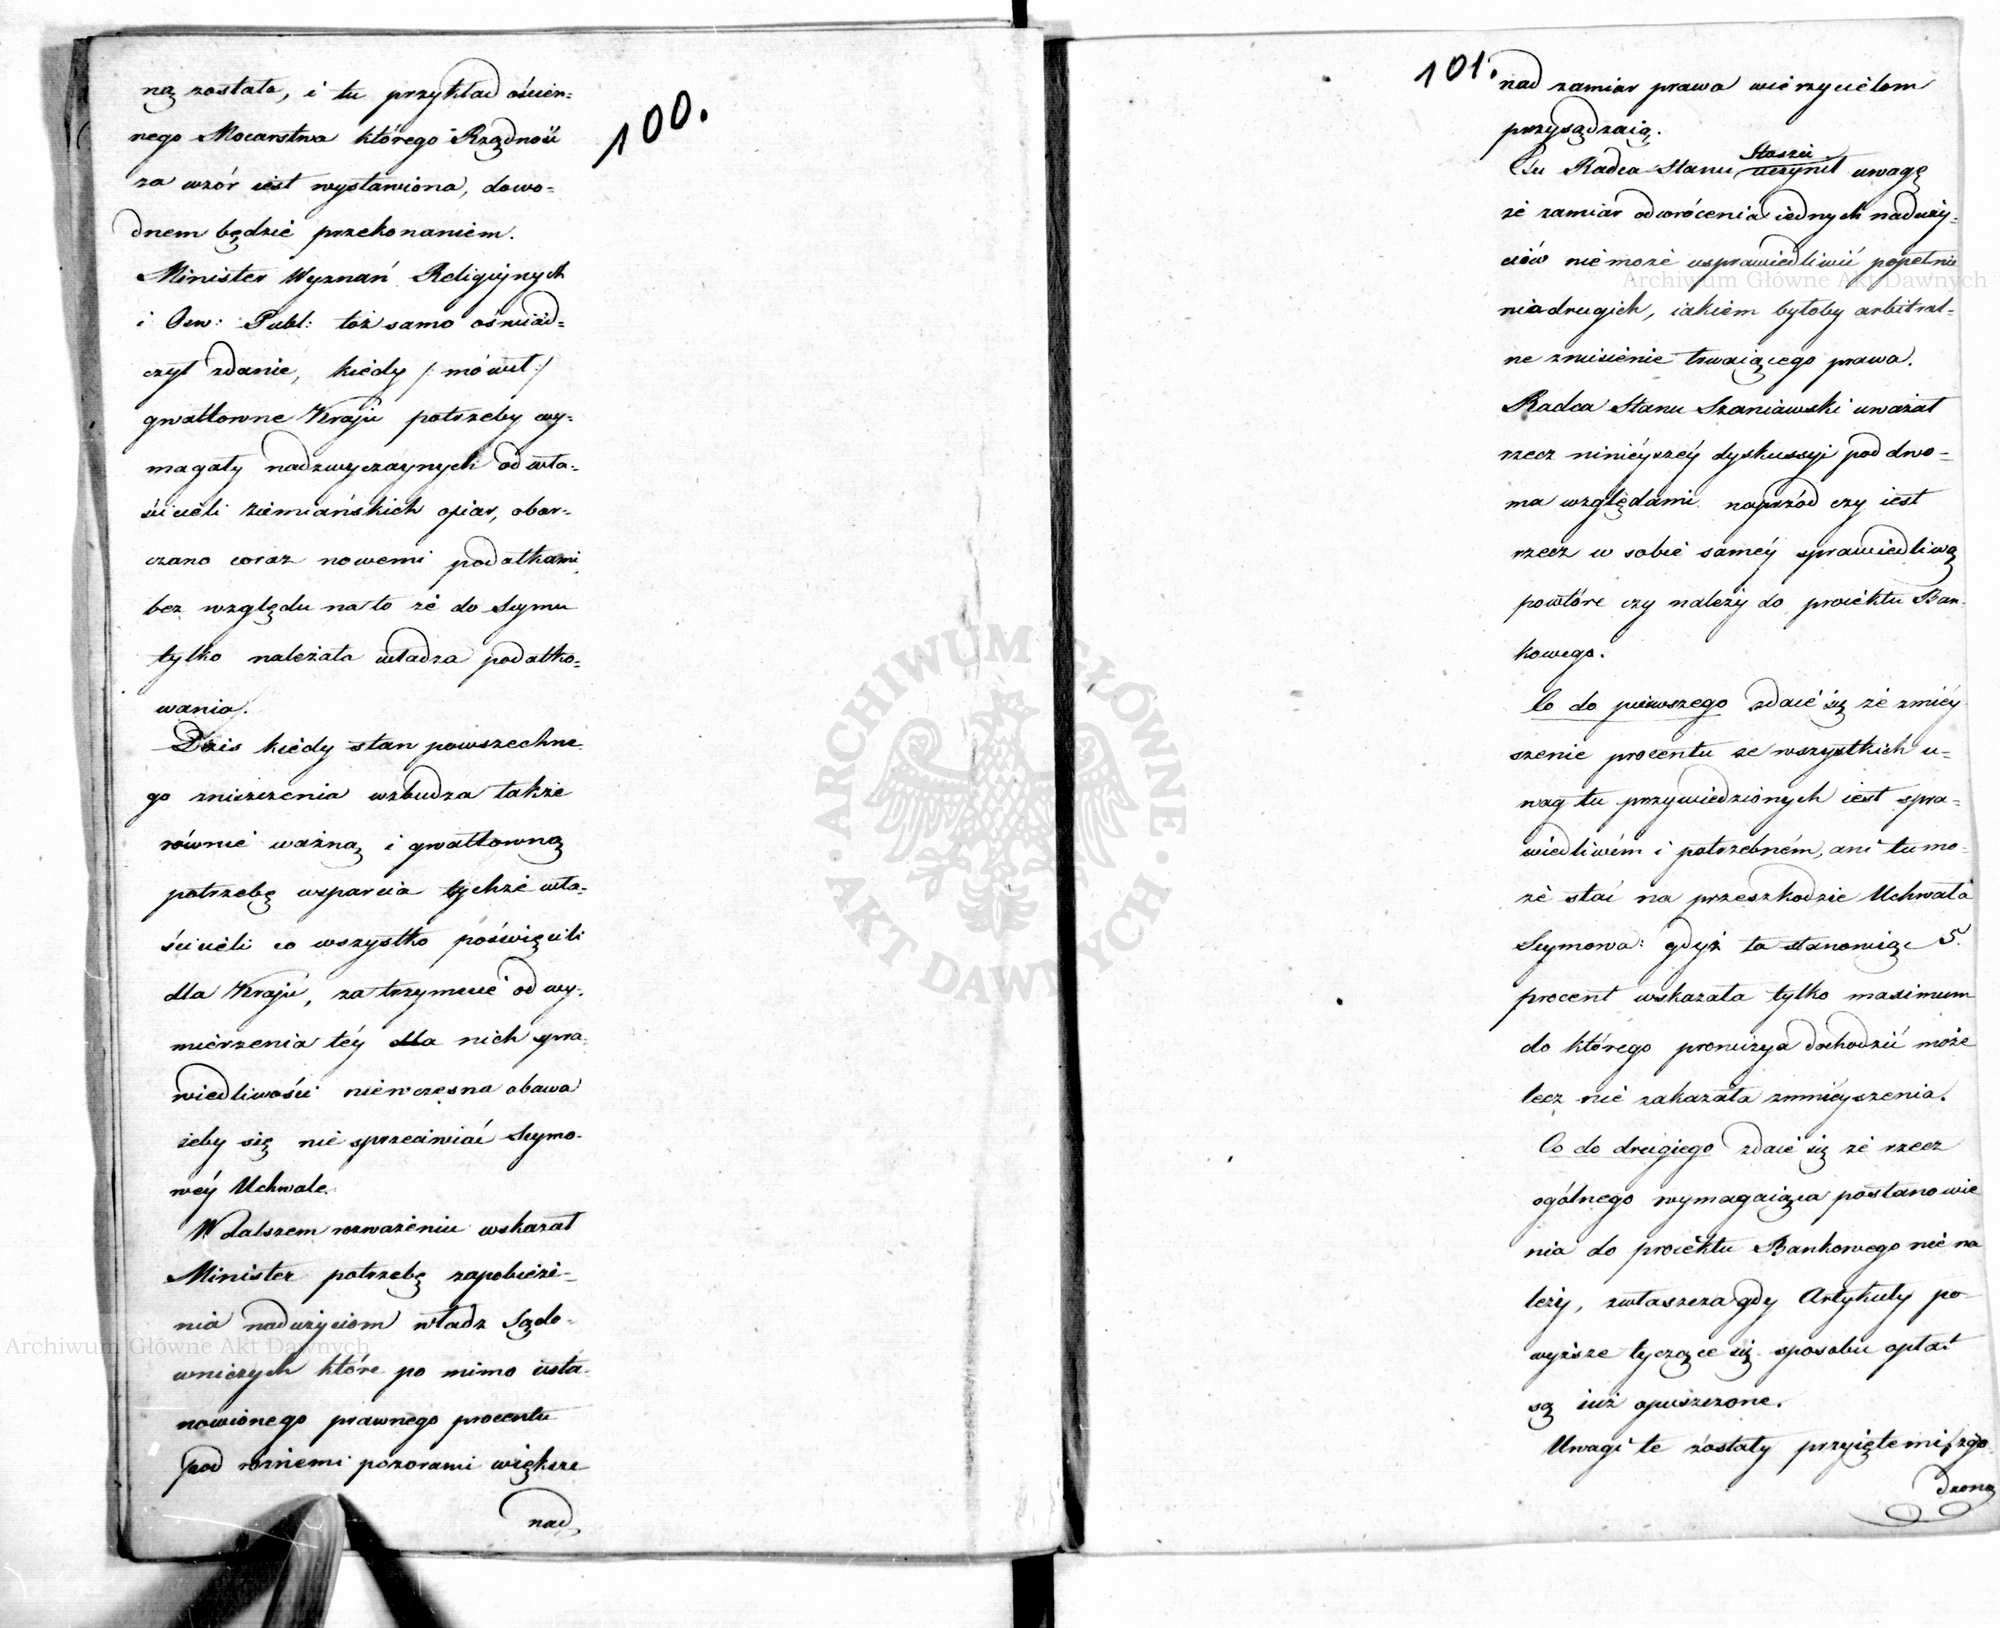 100.
ną została, i tu przykład ościen=
nego Mocarstwa którego Rządność
za wzór iest wystawiona, dowo=
dnem będzie przekonaniem.
Minister Wyznań Religiynych
i Ośw: Publ: toż samo oświad=
czył zdanie, kiedy /: mówił :/
gwałtowne Kraju potrzeby wy=
magały nadzwyczaynych od wła=
ścicieli ziemiańskich ofiar, obar=
czano coraz nowemi podatkami
bez względu na to że do Seymu
tylko należała władza podatko=
wania.
Dziś kiedy stan powszechne
go zniszczenia wzbudza także
równie ważną i gwałtowną
potrzebę wsparcia tychże wła=
ścicieli co wszystko poświęcili
dla Kraju, zatrzymuie od wy=
mierzenia téy dla nich spra=
wiedliwości niewczesna obawa
żeby się nie sprzeciwiać Seymo=
wéy Uchwale.
W dalszem rozważeniu wskazał
Minister potrzebę zapobieże=
nia nadużyciom władz Sądo=
wniczych które po mimo usta=
nowionego prawnego procentu
pod różnemi pozorami większe
nad
101.
nad zamiar prawa wierzycielom
przysądzaią.
Tu Radca Stanu Staszic
uczynił uwagę
że zamiar odwrócenia iednych naduży=
ciów nie może usprawiedliwić popełnie
nia drugich, iakiem byłoby arbitral=
ne zniesienie trwaiącego prawa.
Radca Stanu Szaniawski uważał
rzecz ninieyszéy dyskussyi pod dwo=
ma względami naprzód czy iest
rzecz w sobie saméy sprawiedliwą
powtóre czy należy do proiektu Ban=
kowego.
Co do pierwszego zdaie się że zmiey
szenie procentu ze wszystkich u=
wag tu przywiedzionych iest spra=
wiedliwém i potrzebném, ani tu mo=
że stać na przeszkodzie Uchwała
Seymowa: gdyż ta stanowiąc 5.
procent wskazała tylko maximum
do którego prowizya dochodzić może
lecz nie zakazała zmnieyszenia.
Co do drugiego zdaie się że rzecz
ogólnego wymagaiąca postanowie
nia do proiektu Bankowego nie na
leży, zwłaszcza gdy Artykuły po=
wyższe tyczące się sposobu opłat
są iuż opuszczone.
Uwagi te zostały przyiętemi, zgo=
dzono
Archiwum Główne Akt Dawnych
Archiwum Główne Akt Dawnych
ARCHIWUM GŁÓWNE AKT DAWNYCH